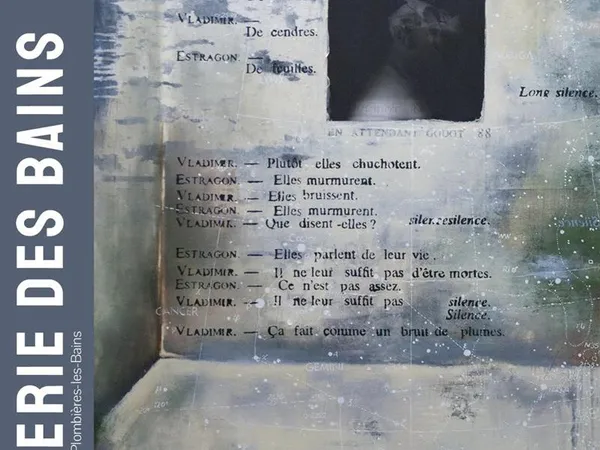 ERIE DES BAINS
Plombières-les-Bains
VLADIMIR. —
De cendres.
ESTRAGON. —
De feuilles.
Long silence.
EN ATTENDANT GODOT 88
VLADIMIR. — Plutôt elles chuchotent.
ESTRAGON. — Elles murmurent.
VLADIMIR. — Elles bruissent.
ESTRAGON. — Elles murmurent.
VLADIMIR. — Que disent-elles ? silencesilence.
silence
ESTRAGON. — Elles parlent de leur vie.
VLADIMIR. — Il ne leur suffit pas d'être mortes.
ESTRAGON. — Ce n'est pas assez.
VLADIMIR. — Il ne leur suffit pas silence.
Silence.
CANCER
VLADIMIR. — Ça fait comme un bruit de plumes.
GEMINI